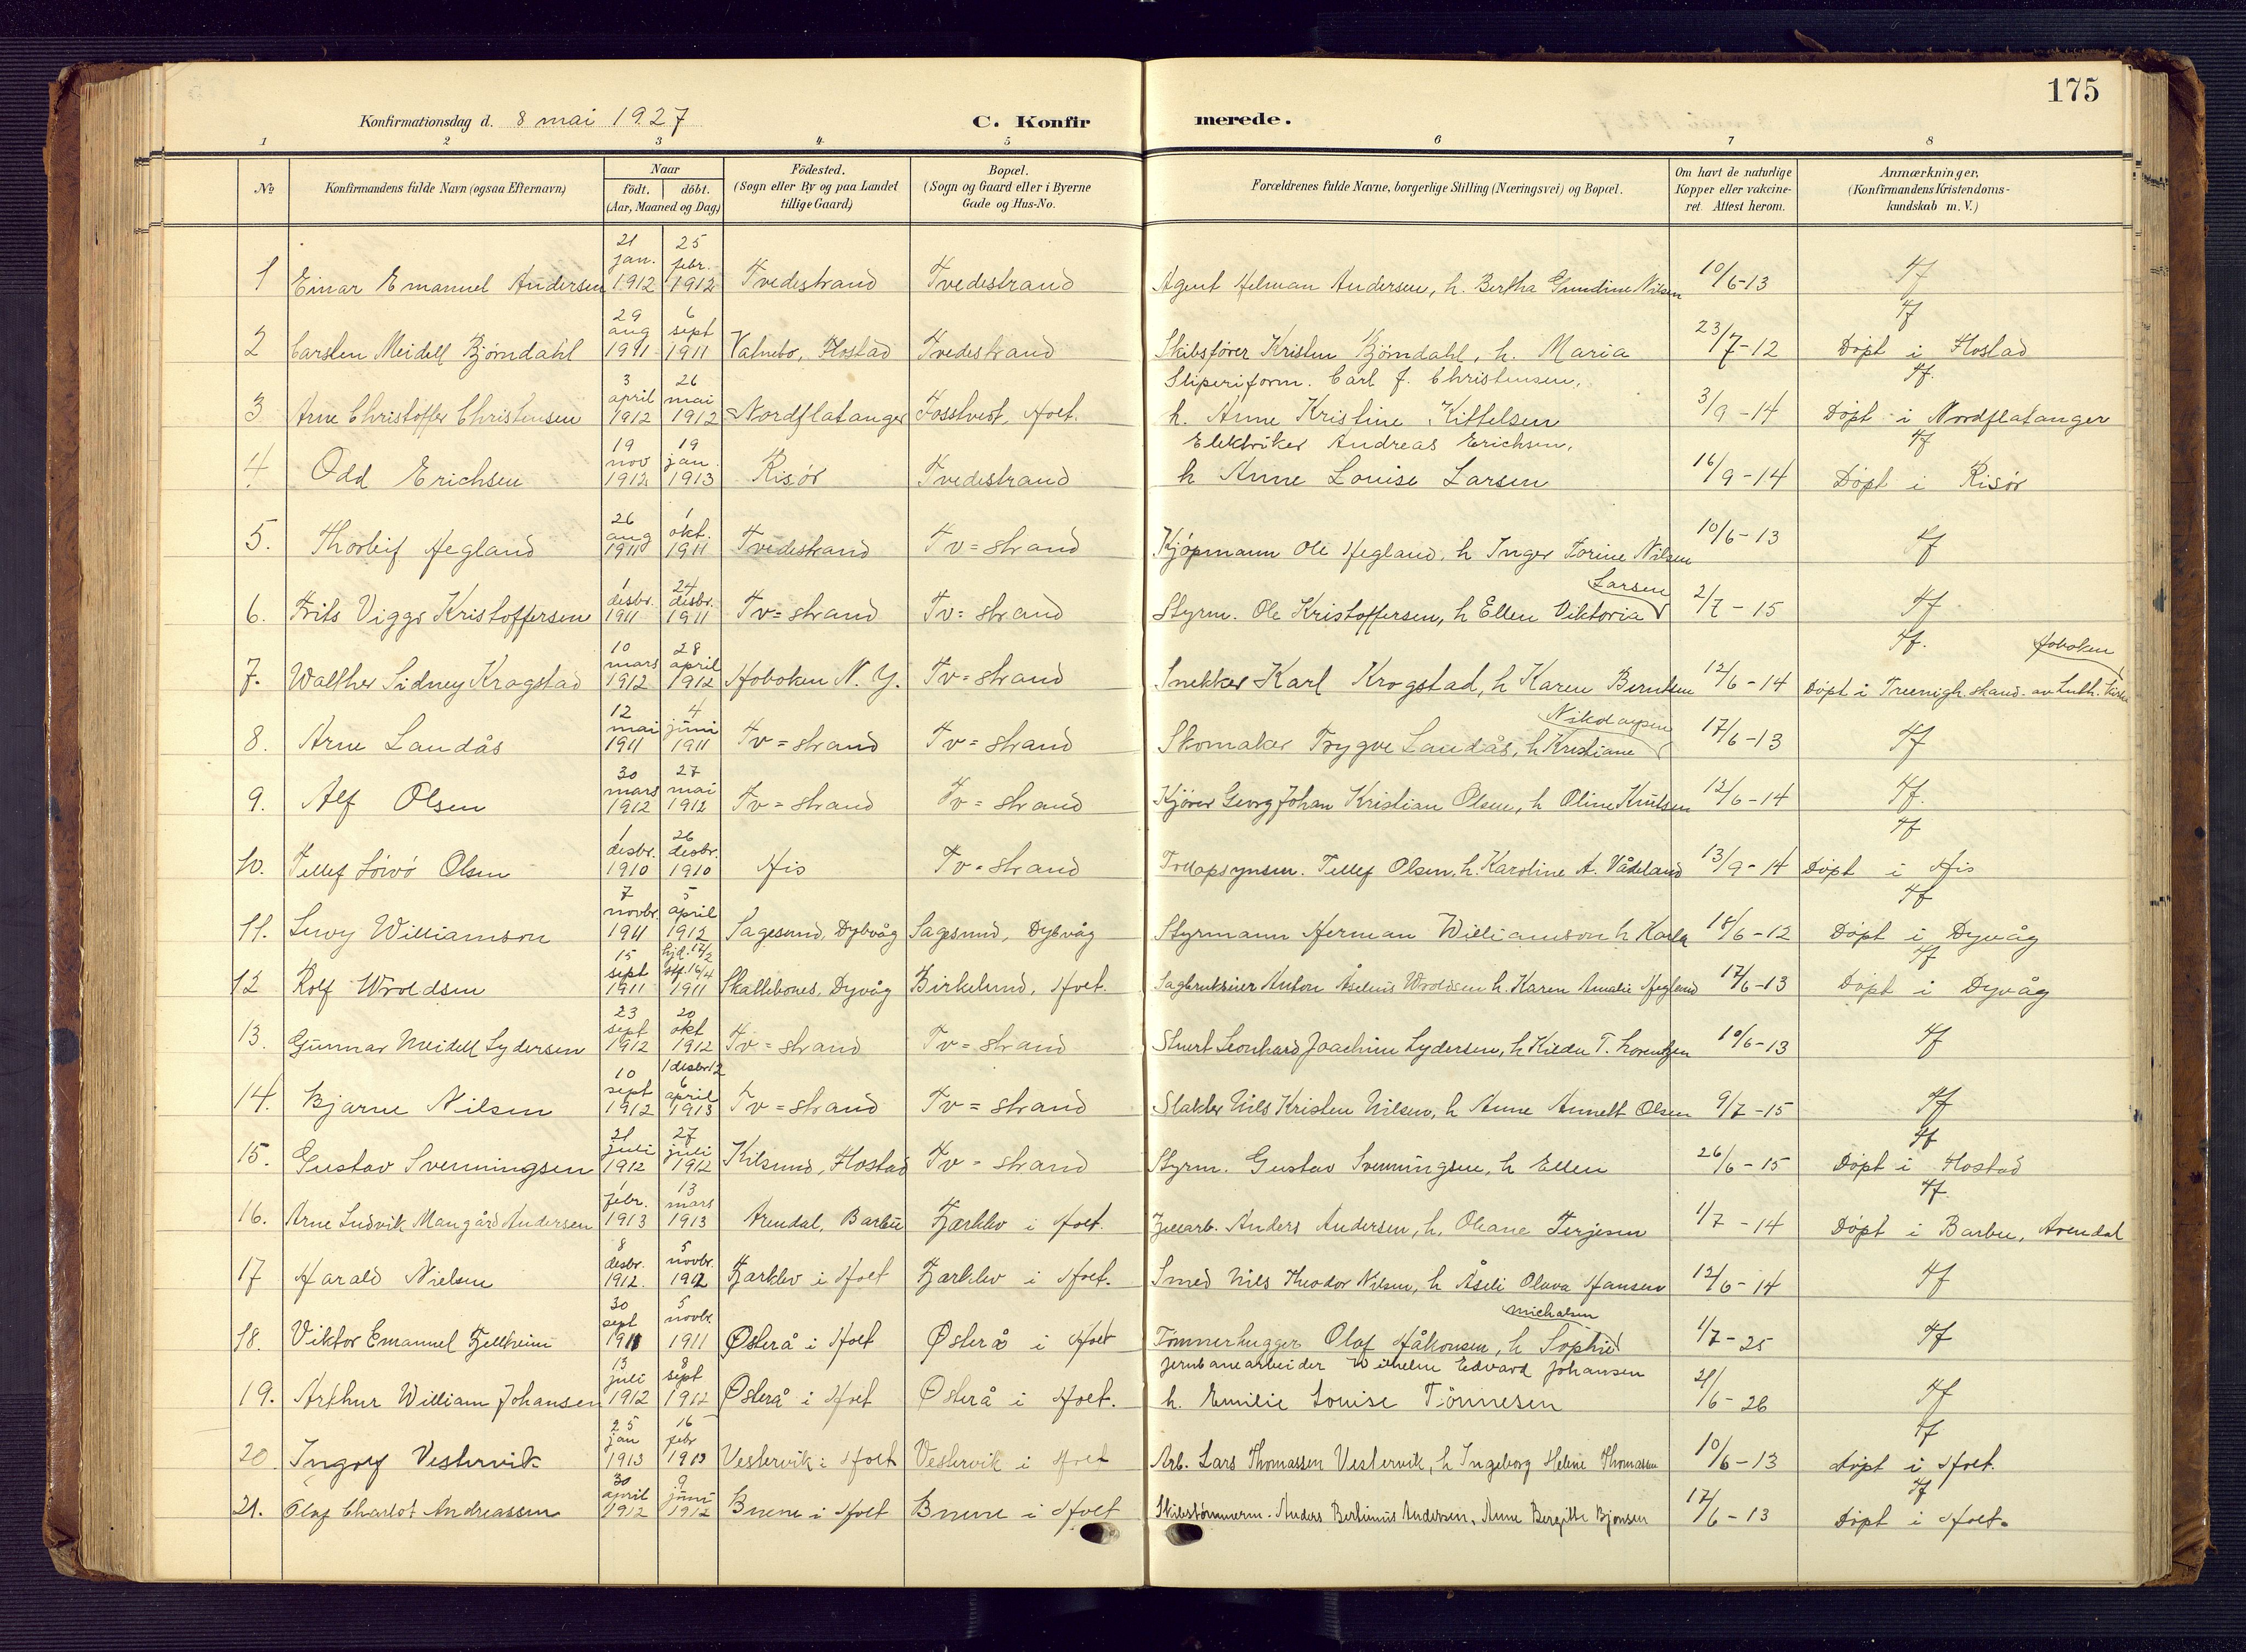 175
Konfirmationsdag d. 8 mai 1927
C. Konfirmerede.
1 2 3 4 5 6 7 8
№ Konfirmandens fulde Navn (ogsaa Efternavn) Naar födt. döbt. (Aar, Maaned og Dag) Födested. (Sogn eller By og paa Landet tillige Gaard) Bopæl. (Sogn og Gaard eller i Byerne Gade og Hus-No. Forældrenes fulde Navne, borgerlige Stilling (Næringsvei) og Bopæl. Om havt de naturlige Kopper eller vakcineret. Attest herom. Anmærkninger, (Konfirmandens Kristendomskundskab m. V.)
1 Einar Emanuel Andersen 21 jan. 1912 25 febr. 1912 Tvedestrand Tvedestrand Agent Helman Andersen, h. Bertha Gundine Nilsen 10/6-13
2 Carsten Meidell Bjørndahl 29 aug 1911 6 sept 1911 Flostad Tvedestrand Skibsfører Kristen Bjørndahl, h. Maria 23/7-12 Døpt i Flostad
3 Arne Christoffer Christensen 3 april 1912 26 mai 1912 Nordflatanger Fosstveit, Holt. Sliperiform. Carl J. Christensen, h. Anne Kristine Kittelsen 3/9-14 Døpt i Nordflatanger
4 Odd Erichsen 19 nov 1912 19 jan. 1913 Risør Tvedestrand Elektriker Andreas Erichsen, h Anne Louise Larsen 16/9-14 Døpt i Risør
5. Thorleif Hegland 26 aug 1911 1 okt. 1911 Tvedestrand Tv=strand Kjøpmann Ole Hegland, h Inger Torine Nilsen 10/6-13
6. Frits Viggo Kristoffersen 1 desbr. 1911 24 desbr. 1911 Tv=strand Tv=strand Styrm. Ole Kristoffersen, h Ellen Viktoria Larsen 2/7-15
7. Walther Sidney Krogstad 10 mars 1912 28 april 1912 Hoboken N. Y. Tv=strand Snekker Karl Krogstad, h Karen Berntsen 12/6-14 Døpt i Treenigh. skand. av Luth. Kirke Hoboken
8. Arne Landås 12 mai 1911 4 juni 1911 Tv=strand Tv=strand Skomaker Trygve Landås, h Kristiane Nikolaysen 17/6-13
9. Alf Olsen 30 mars 1912 27 mai 1912 Tv=strand Tv=strand Kjører Georg Johan Kristian Olsen, h Oline Knutsen 12/6-14
10. Tellef Olsen 1 desbr. 1910 26 desbr. 1910 His Tv=strand Tollopsynsm. Tellef Olsen, h. Karoline A. Vådeland 13/9-14 Døpt i His
11. Williamson 7 novbr. 1911 5 april 1912 Sagesund, Dybvåg Sagesund, Dybvåg Styrmann Herman Williamson h Karla 18/6-12 Døpt i Dyvåg
12 Rolf Wroldsen 15 sept 1911 hjd. 17/2 stf. 16/4 1911 Skattebones, Dyvåg Birkelund, Holt. Sagbrukseier Anton Åselius Wroldsen h. Karen Amalie Hegland 17/6-13 Døpt i Dyvåg
13. Gunnar Meidell Lydersen 23 sept 1912 20 okt 1912 Tv=strand Tv=strand Stuert Leonhard Joachim Lydersen, h Hilda T. Lorentzen 10/6-13
14. Bjarne Nilsen 10 sept 1912 1 desbr 12 6 april 1913 Tv=strand Tv=strand Slakter Nils Kristen Nilsen, h Anne Annett Olsen 9/7-15
15. Gustav Svenningsen 21 juli 1912 27 juli 1912 Kilsund, Flostad Tv=strand Styrm. Gustav Svenningsen, h Ellen 26/6-15 Døpt i Flostad
16. Arne Ludvik Mangård Andersen 1 febr. 1913 13 mars 1913 Arendal, Barbu Fjærkleiv i Holt. Anders Andersen, h. Oleane Terjesen 1/7-14 Døpt i Barbu, Arendal
17 Harald Nielsen 8 desbr. 1912 5 novbr. 1912 i Holt i Holt. Smed Nils Theodor Nilsen, h Åseli Olava Hansen 12/6-14
18. Viktor Emanuel Fjellheim 30 sept 1911 5 novbr. 1911 Østerå i Holt Østerå i Holt Tømmerhugger Olaf Håkonsen, h Sophie Michalsen 1/7-25
19. Arthur William Johansen 13 juli 1912 8 sept 1912 Østerå i Holt Østerå i Holt. Jernbanearbeider Wilhelm Edvard Johansen h. Emilie Louise Tønnesen 21/6-26
20. Ingolf Vestervik 25 jan 1913 16 febr 1913 Vestervik i Holt Vestervik i Holt Arb. Lars Thomassen Vestervik, h Ingeborg Helene Thomassen 10/6-13 døpt i Holt.
21. Olaf Charlot Andreassen 30 april 1912 9 juni 1912 Bnene i Holt Bnene i Holt Skibstømmerm. Anders Bertinius Andersen, Anne Bergitte Bjonsen 17/6-13 Døpt i Holt.